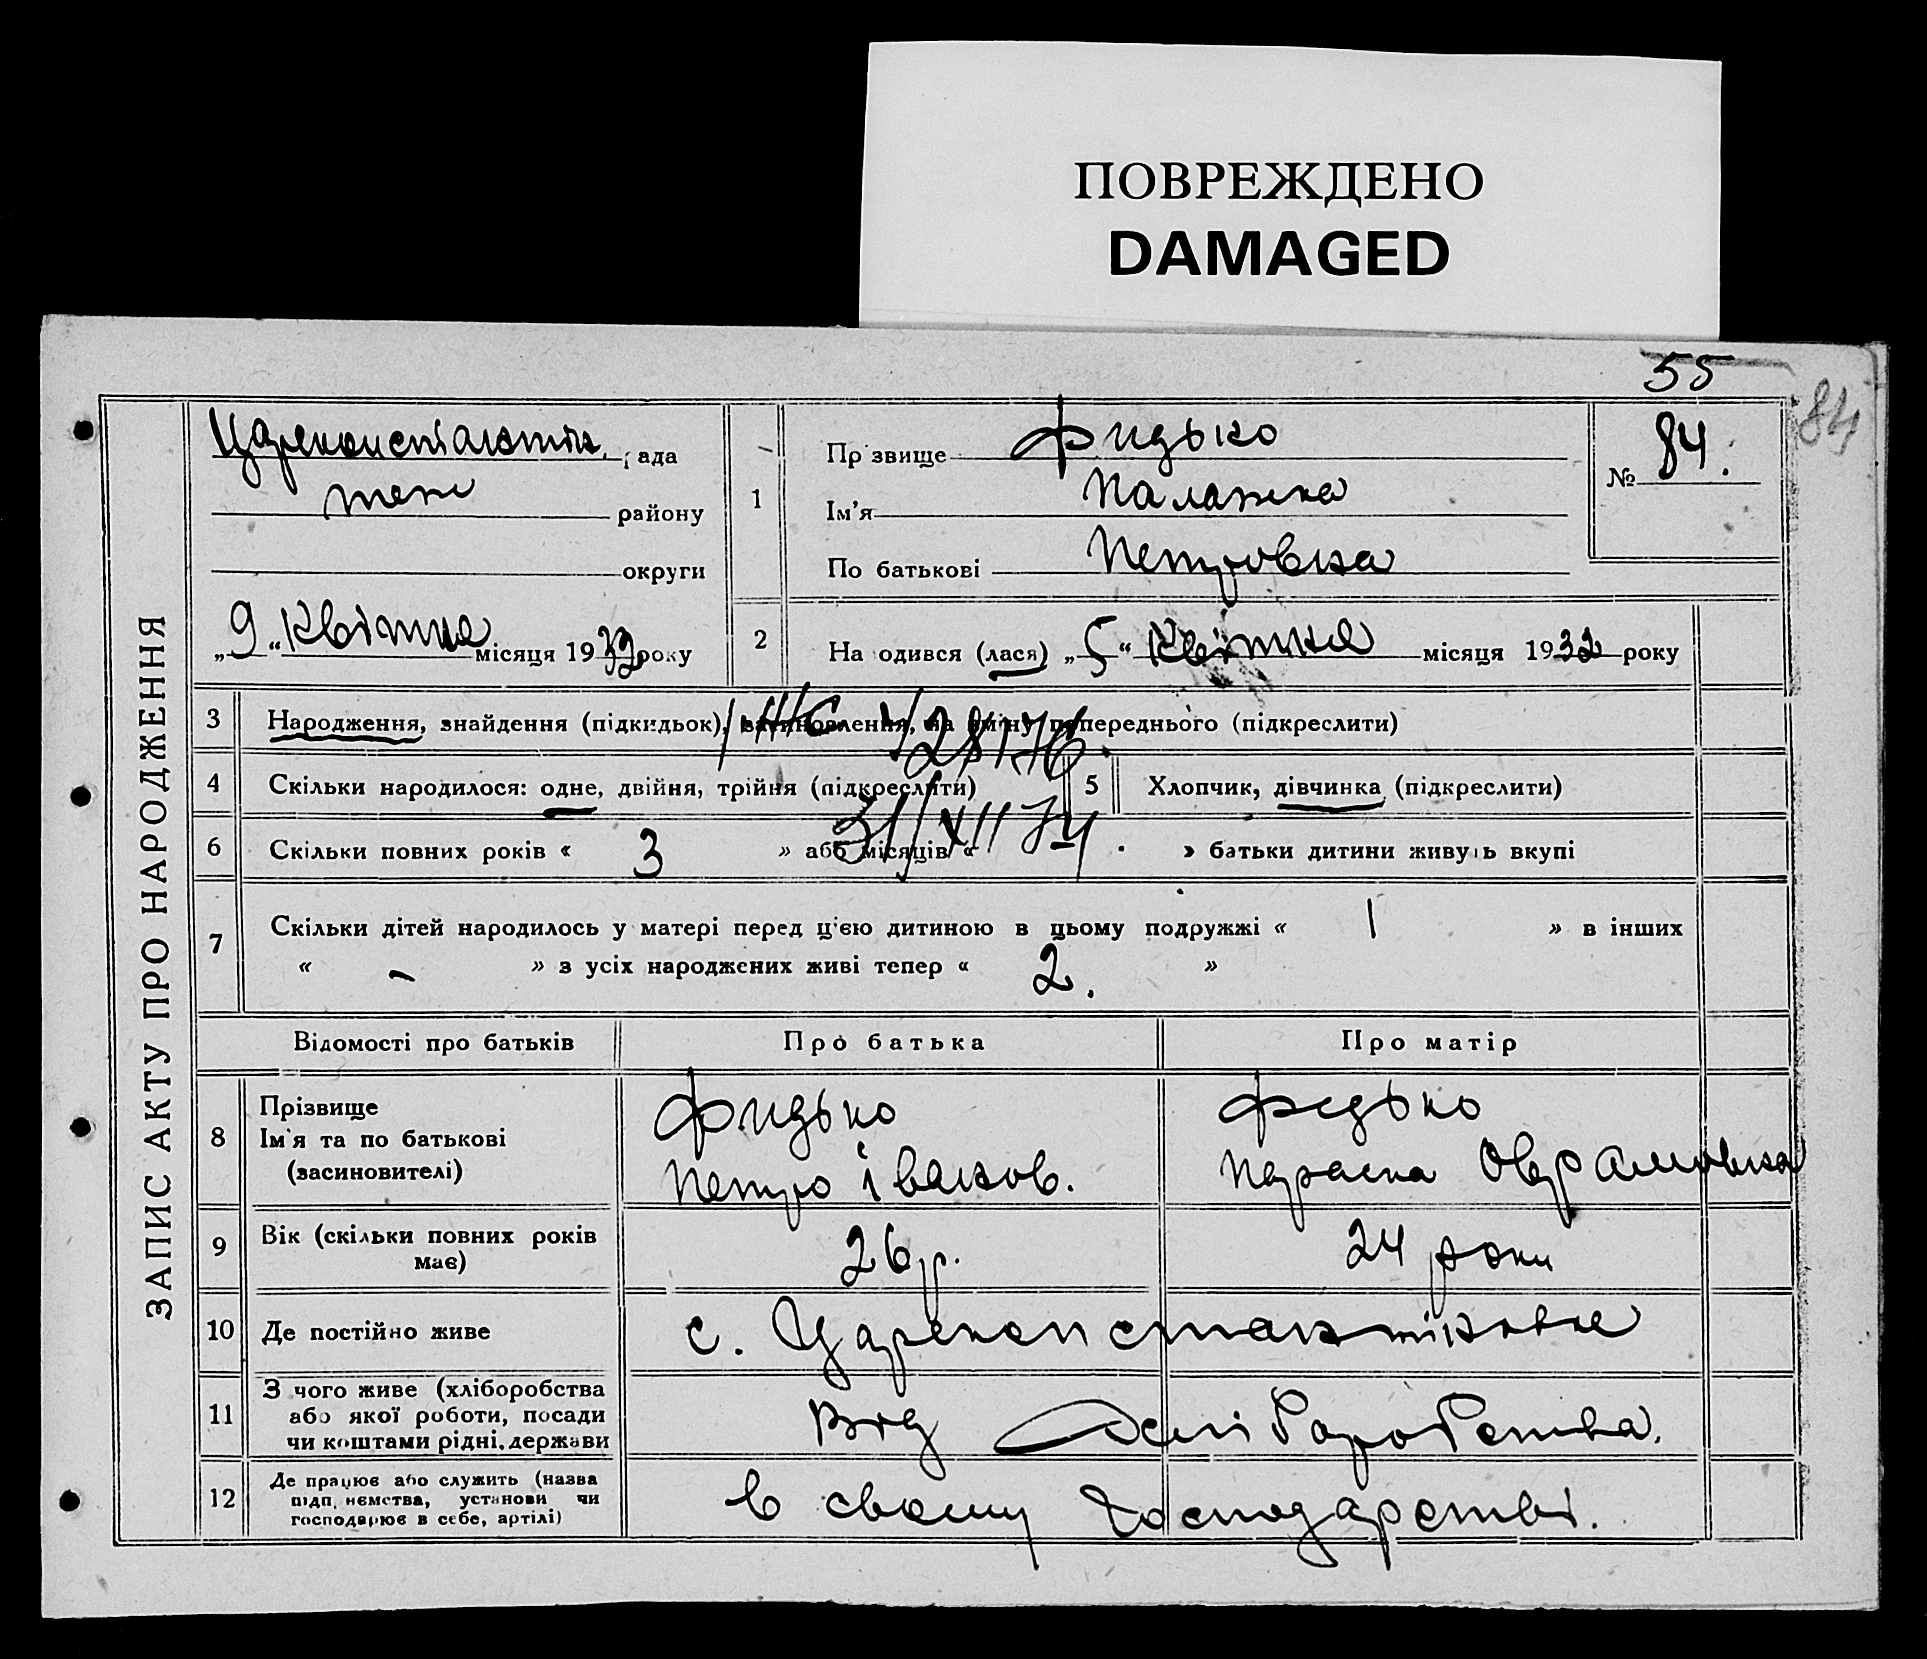 ПОВРЕЖДЕНО
DAMAGED
55
84
ЗАПИС АКТУ ПРО НАРОДЖЕННЯ
Цареконстантин. рада
району
округи
„9“ Квітня місяця 1932 року
1
Прізвище Фидько
Ім'я Палажка
По батькові Петровна
№ 84.
2
На одився (лася) „5“ Квітня місяця 1932 року
3 Народження, знайдення (підкидьок), заміну попереднього (підкреслити)
V28176.
4 Скільки народилося: одне, двійня, трійня (підкреслити)
5 Хлопчик, дівчинка (підкреслити)
31/XII 74
6 Скільки повних років « 3 » або місяців « » батьки дитини живуть вкупі
7 Скільки дітей народилось у матері перед ц'ею дитиною в цьому подружжі « 1 » в інших
« – » з усіх народжених живі тепер « 2. »
Відомості про батьків Про батька Про матір
8 Прізвище
Ім'я та по батькові
(засиновителі)
Фидько
Петро Іванов.
Федько
Параска Оврамовна
9 Вік (скільки повних років
має)
26 р. 24 роки
10 Де постійно живе с. Цареконстантиновке
11 З чого живе (хліборобства
або якої роботи, посади
чи коштами рідні, держави
Від хліборобства.
12 Де працює або служить (назва
підп, немства, установи чи
господарює в себе, артілі)
в своему господарстві.